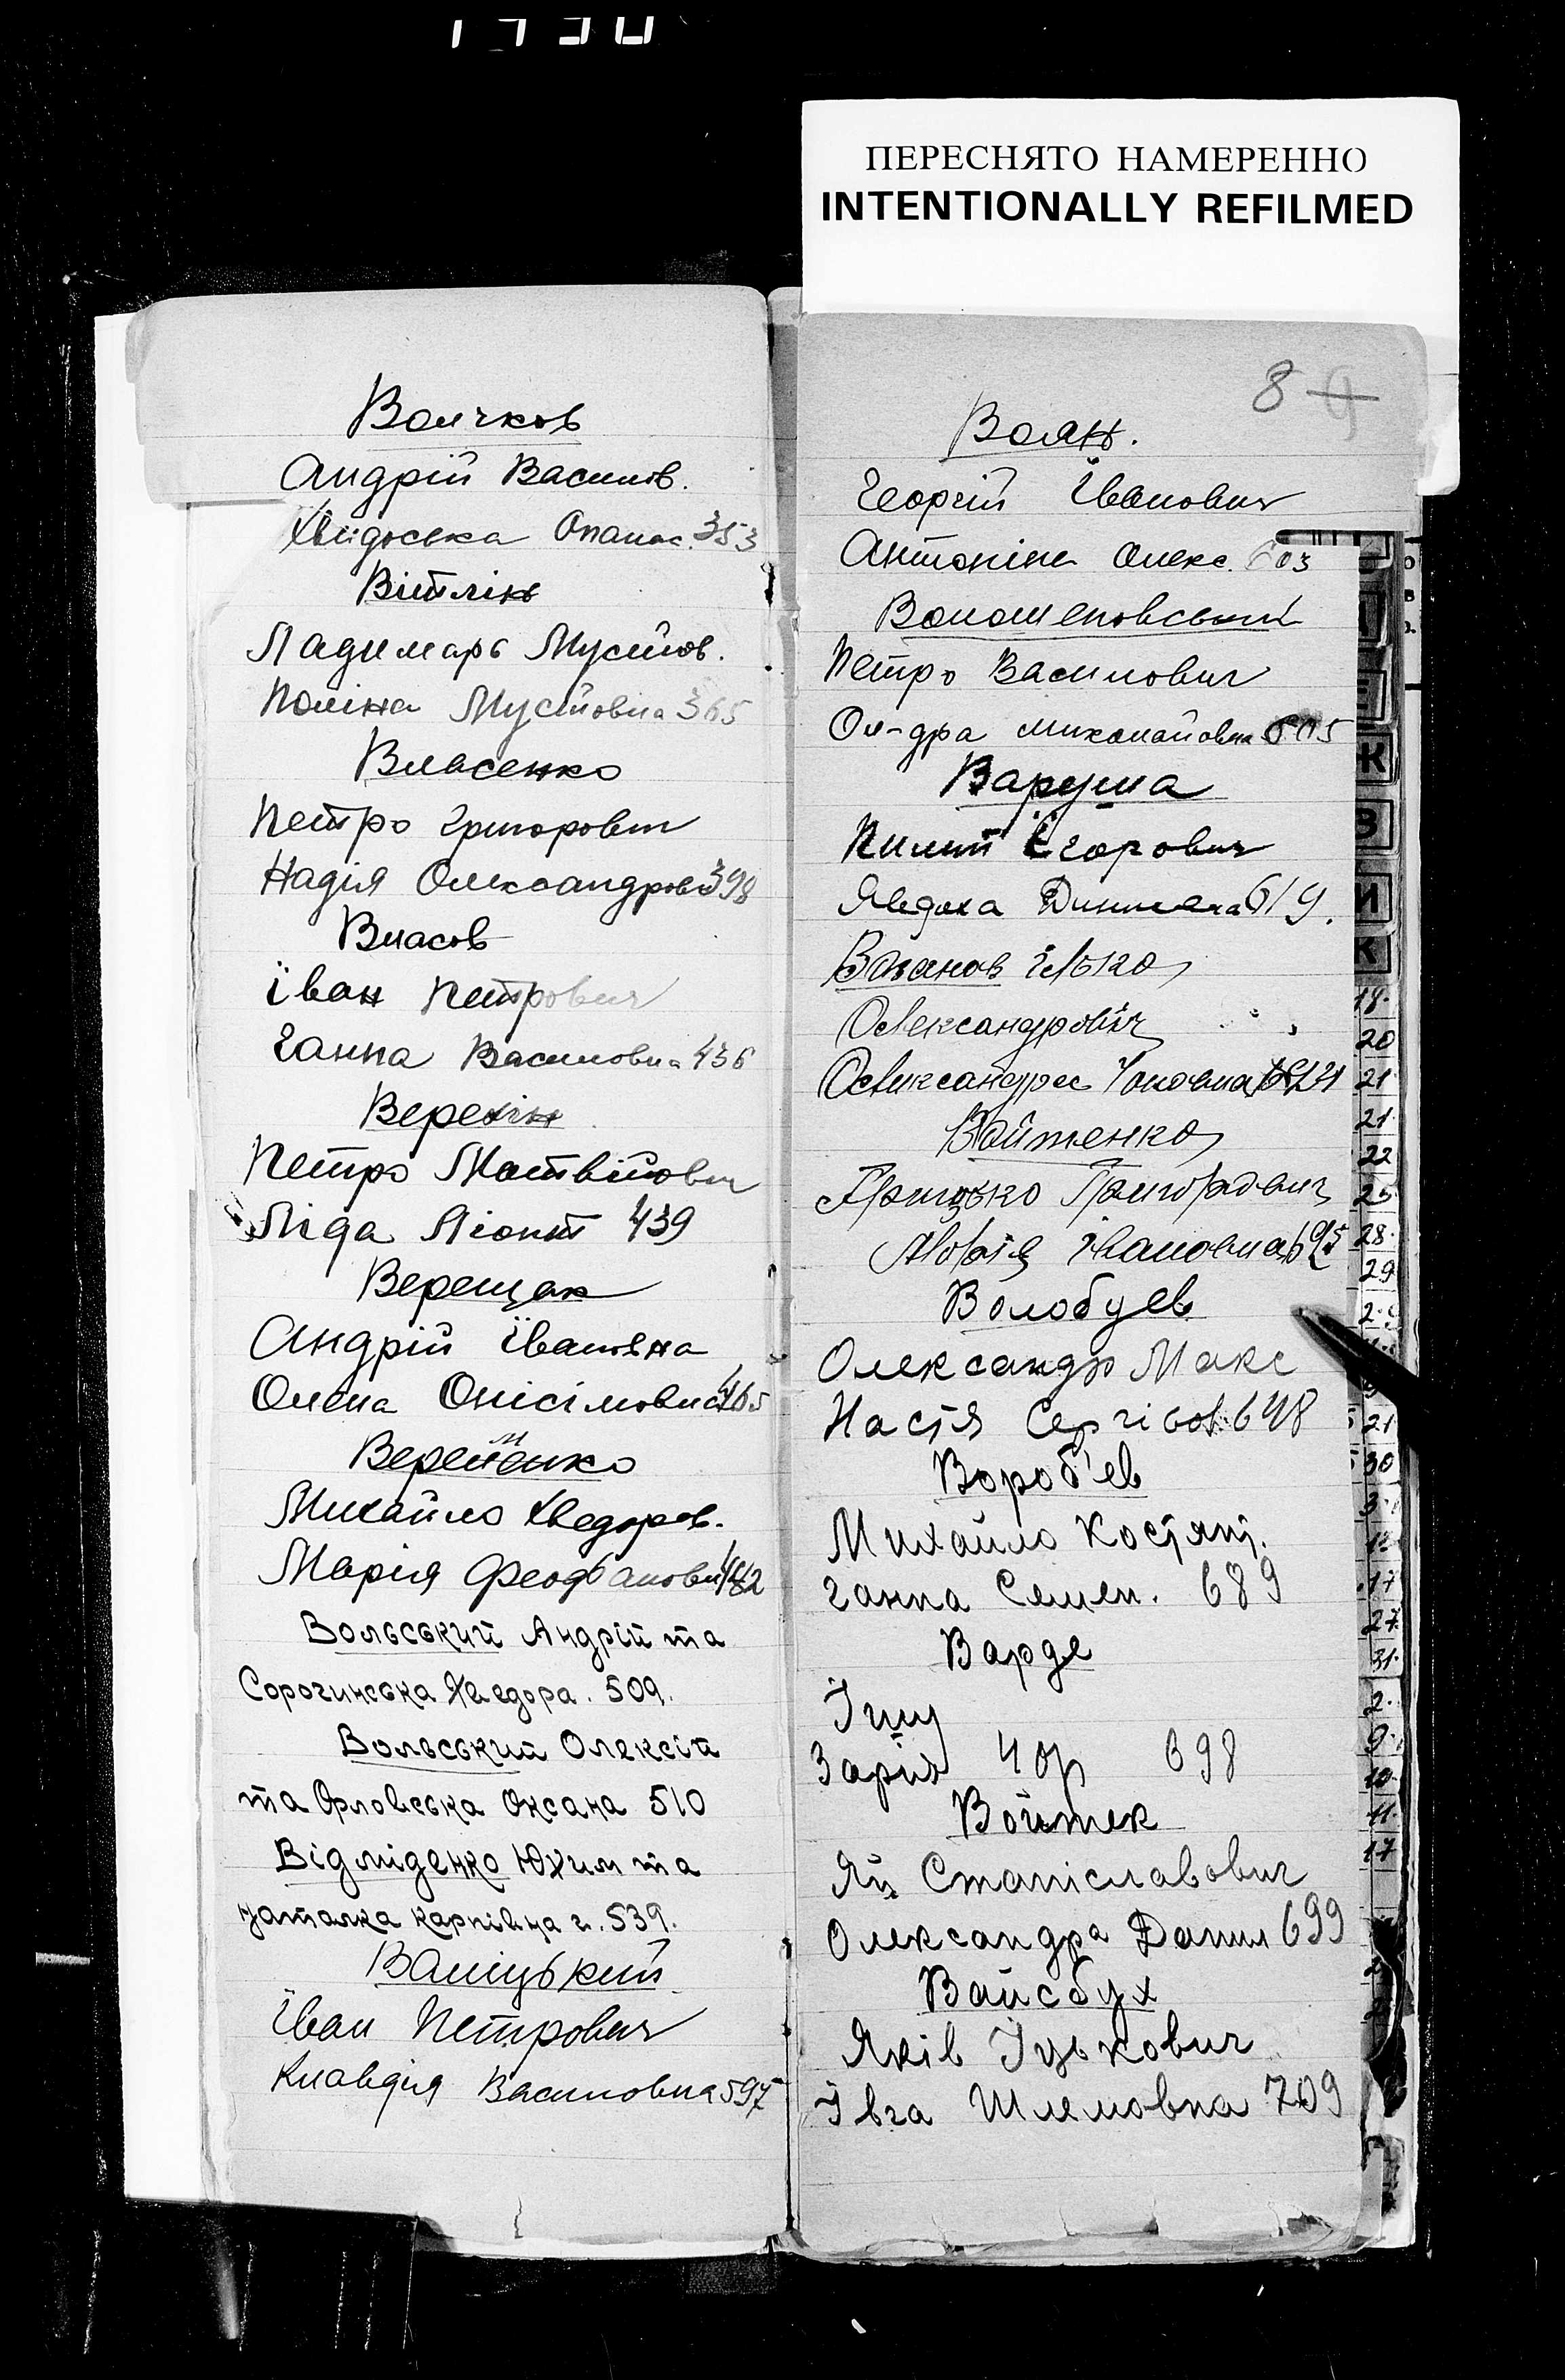 ПЕРЕСНЯТО НАМЕРЕННО
INTENTIONALLY REFILMED
Волчков
Андрій Васильов.
Хвидоська Опанас. 353
Вітлін
Ладимарь Мусійов.
Поліна Мусіовна 365
Власенко
Петро Григорович
Надія Олександров 398
Власов
Їван Петрович
Ганна Василовна 436
Верехін
Петро Матвійович
Ліда Ліонт 439
Верещак
Андрій Їванвна
Олена Онісімовна 465
Веременко
Михайло Хведоров.
Марія Феофановн 482
Вольський Андрій та
Сорочинська Хведора. 509.
Вольський Олексій
та Орловська Оксана 510
Відміденко Юхим та
Наталка Карпівна ч. 539.
Валіцький
Їван Петрович
Клавдія Василовна 597
8
Волян.
Георгій Їванович
Антоніна Олекс. 603
Волошеновський
Петро Василович
Ол-дра Михайловна 605
Варуша
Пилип Єгорович
Явдоха 619.
Ілько
Олександрович
Олександра
Войтенко
Грицько Григорович
Івановна 695
Волобуєв
Олександр Макс
Настя Сергієв. 648
Вороб'єв
Михайло Костянт.
Ганна Семен. 689
Варде
Іцц
Зарія Юр 698
Войтек
Ян Станіславович
Олександра Данил 699
Вайсбух
Яків Іцькович
Івга Шлемовна 709
Ж
З
И
К